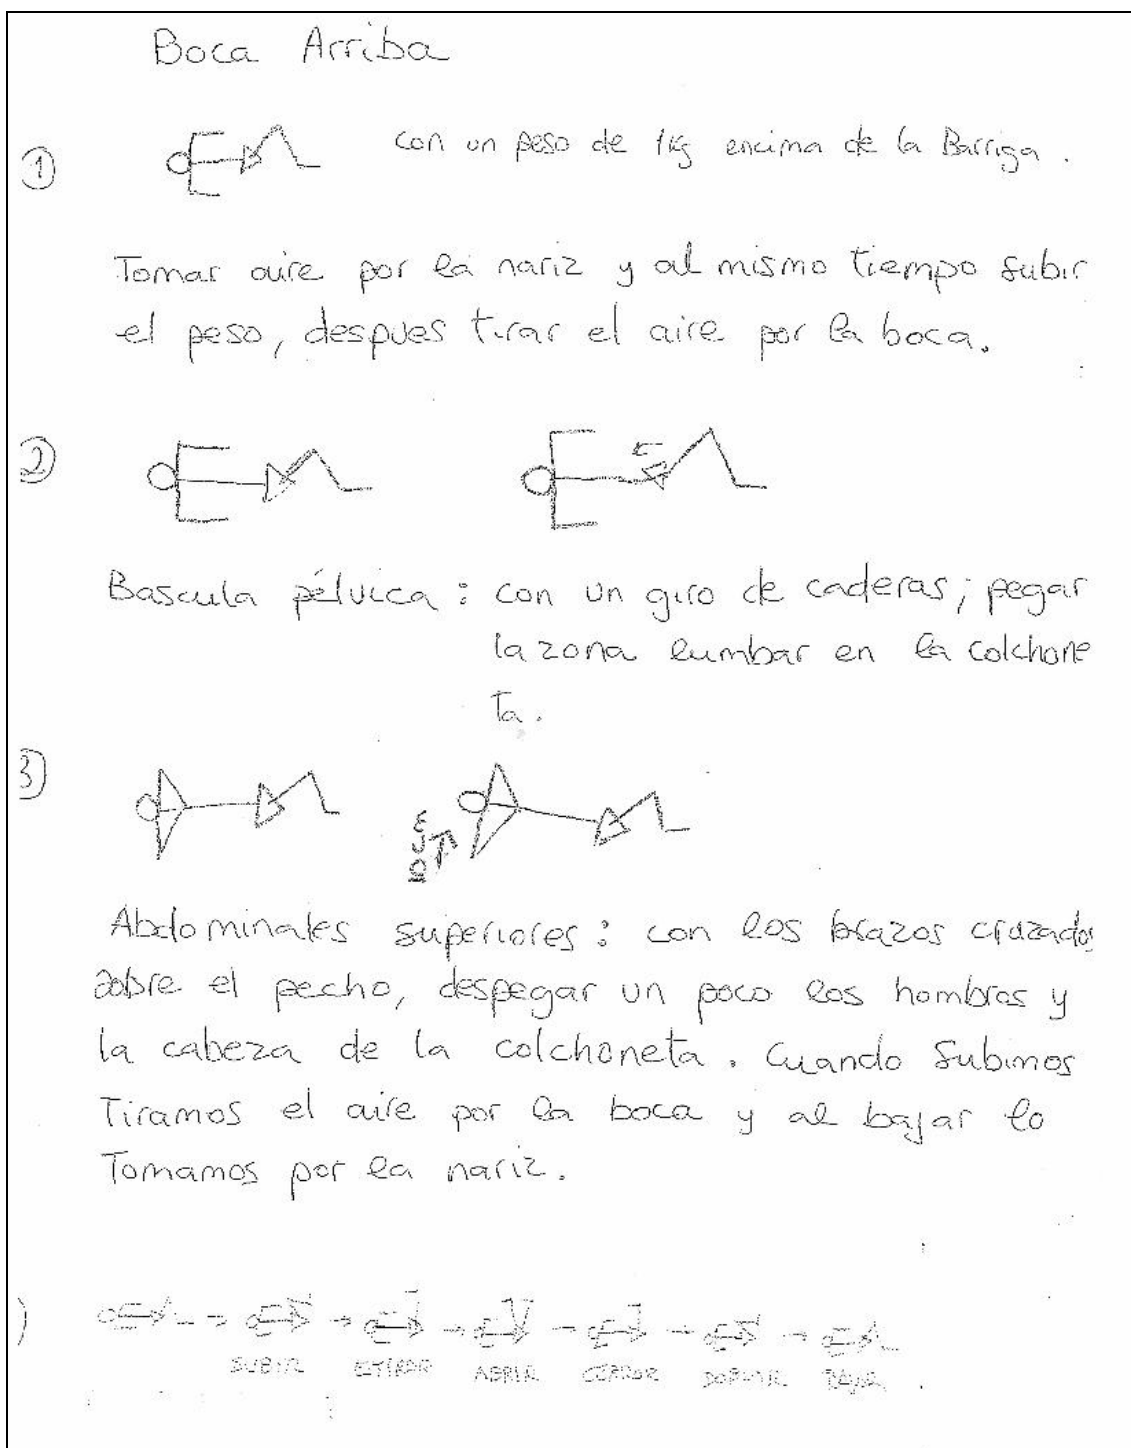 Boca Arriba
① con un peso de 1kg encima de la Barriga.
Tomar aire por la nariz y al mismo tiempo subir
el peso, despues tirar el aire por la boca.
②
Bascula pélvica: con un giro de caderas; pegar
la zona lumbar en la colchone
ta.
3)
Abdominales superiores: con los brazos cruzados
sobre el pecho, despegar un poco los hombros y
la cabeza de la colchoneta. Cuando subimos
Tiramos el aire por la boca y al bajar lo
Tomamos por la nariz.
)
SUBIR ESTIRAR ABRIR CERRAR DOBLAR BAJAR.